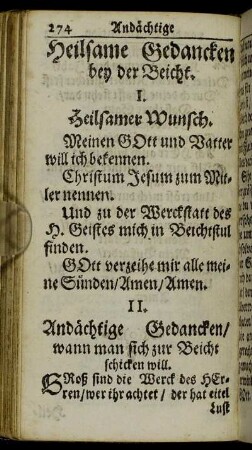 274 Andächtige
Heilsame Gedancken
bey der Beicht.
I.
Heilsamer Wunsch.
Meinen GOtt und Vatter
will ich bekennen.
Christum Jesum zum Mit-
ler nennen.
Und zu der Werckstatt des
H. Geistes mich in Beichtstul
finden.
GOtt verzeihe mir alle mei-
ne Sünden/Amen/Amen.
II.
Andächtige Gedancken/
wann man sich zur Beicht
schicken will.
GRoß sind die Werck des HEr-
ren/wer ihr achtet/ der hat eitel
Lust